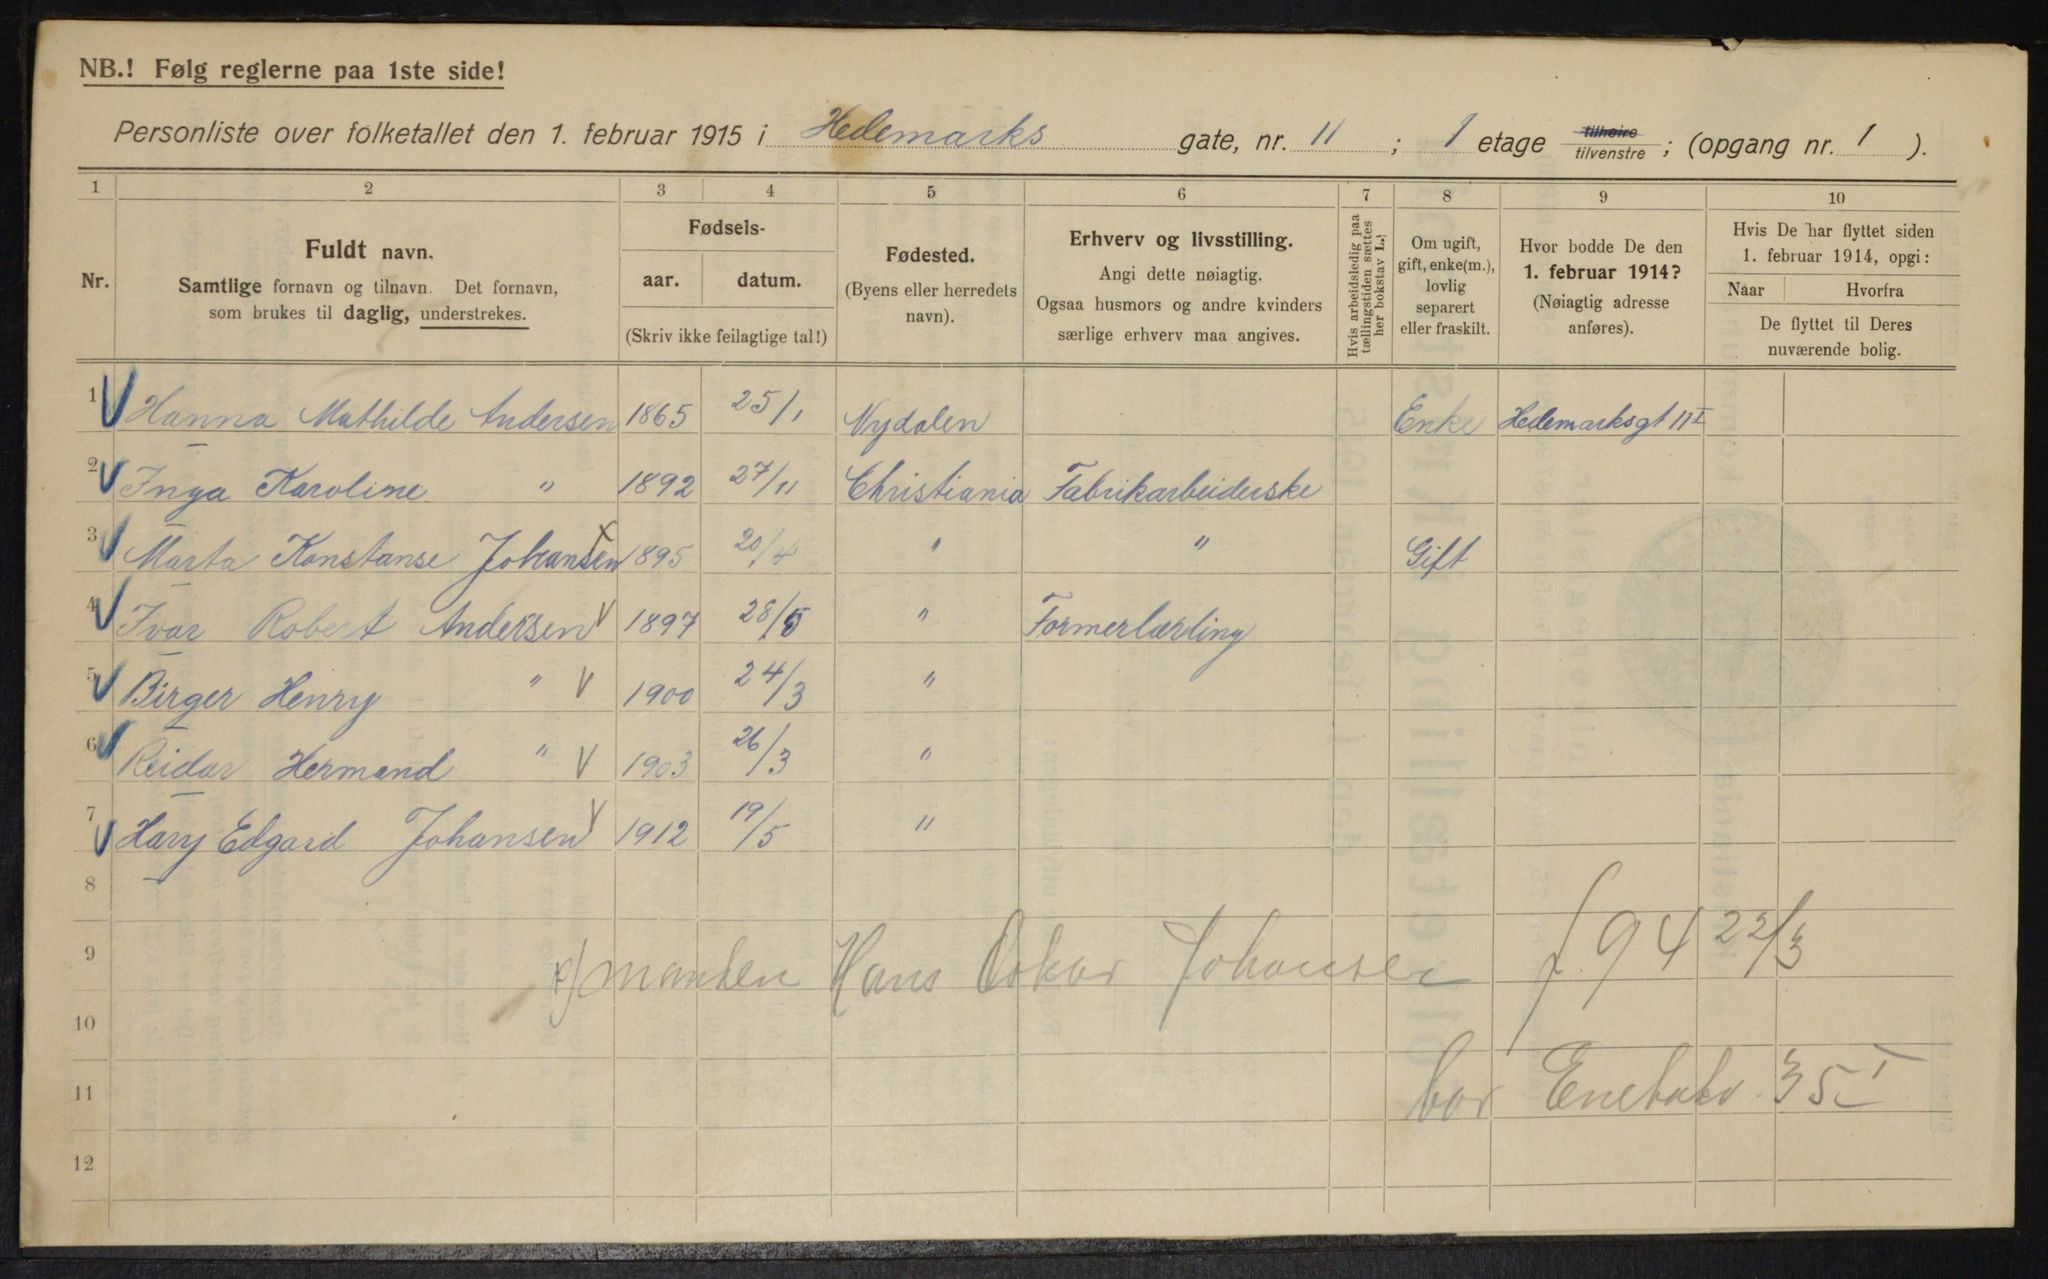 NB.! Følg reglerne paa 1ste side!
Personliste over folketallet den 1. februar 1915 i Hedemarks gate, nr. 11 ; 1 etage tilhøire tilvenstre ; (opgang nr. 1 ).
1 2 3 4 5 6 7 8 9 10
Nr.
Fuldt navn.
Samtlige fornavn og tilnavn. Det fornavn,
som brukes til daglig, understrekes.
Fødsels-
aar. datum.
(Skriv ikke feilagtige tal!)
Fødested.
(Byens eller herredets
navn).
Erhverv og livsstilling.
Angi dette nøiagtig.
Ogsaa husmors og andre kvinders
særlige erhverv maa angives.
Hvis arbeidsledig paa
tællingstiden sættes
her bokstav L.!
Om ugift,
gift, enke(m.),
lovlig
separert
eller fraskilt.
Hvor bodde De den
1. februar 1914?
(Nøiagtig adresse
anføres).
Hvis De har flyttet siden
1. februar 1914, opgi:
Naar Hvorfra
De flyttet til Deres
nuværende bolig.
1 Hanna Mathilde Andersen 1865 25/1 Nydalen Enke Hedemarksgt 11 I
2 Inga Karoline " 1892 27/11 Christiania Fabrikarbeiderske
3 Marta Konstanse Johansen x 1895 20/4 " " Gift
4 Ivar Robert Andersen 1897 28/5 " Formerlærling
5 Birger Henry " 1900 24/3 "
6 Reidar Hermand " 1903 26/3 "
7 Hary Edgard Johansen 1912 19/5 "
8
9 x) manden Hans Oskar Johansen f. 94 22/3
10
11 bor Enebakv. 35 I
12